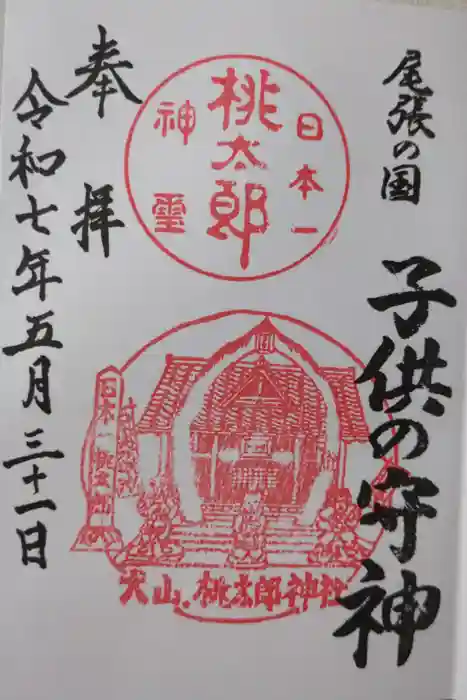 尾張の国
子供の守神
日本一
桃太郎
神霊
犬山、桃太郎神社
奉拝
令和七年五月三十一日